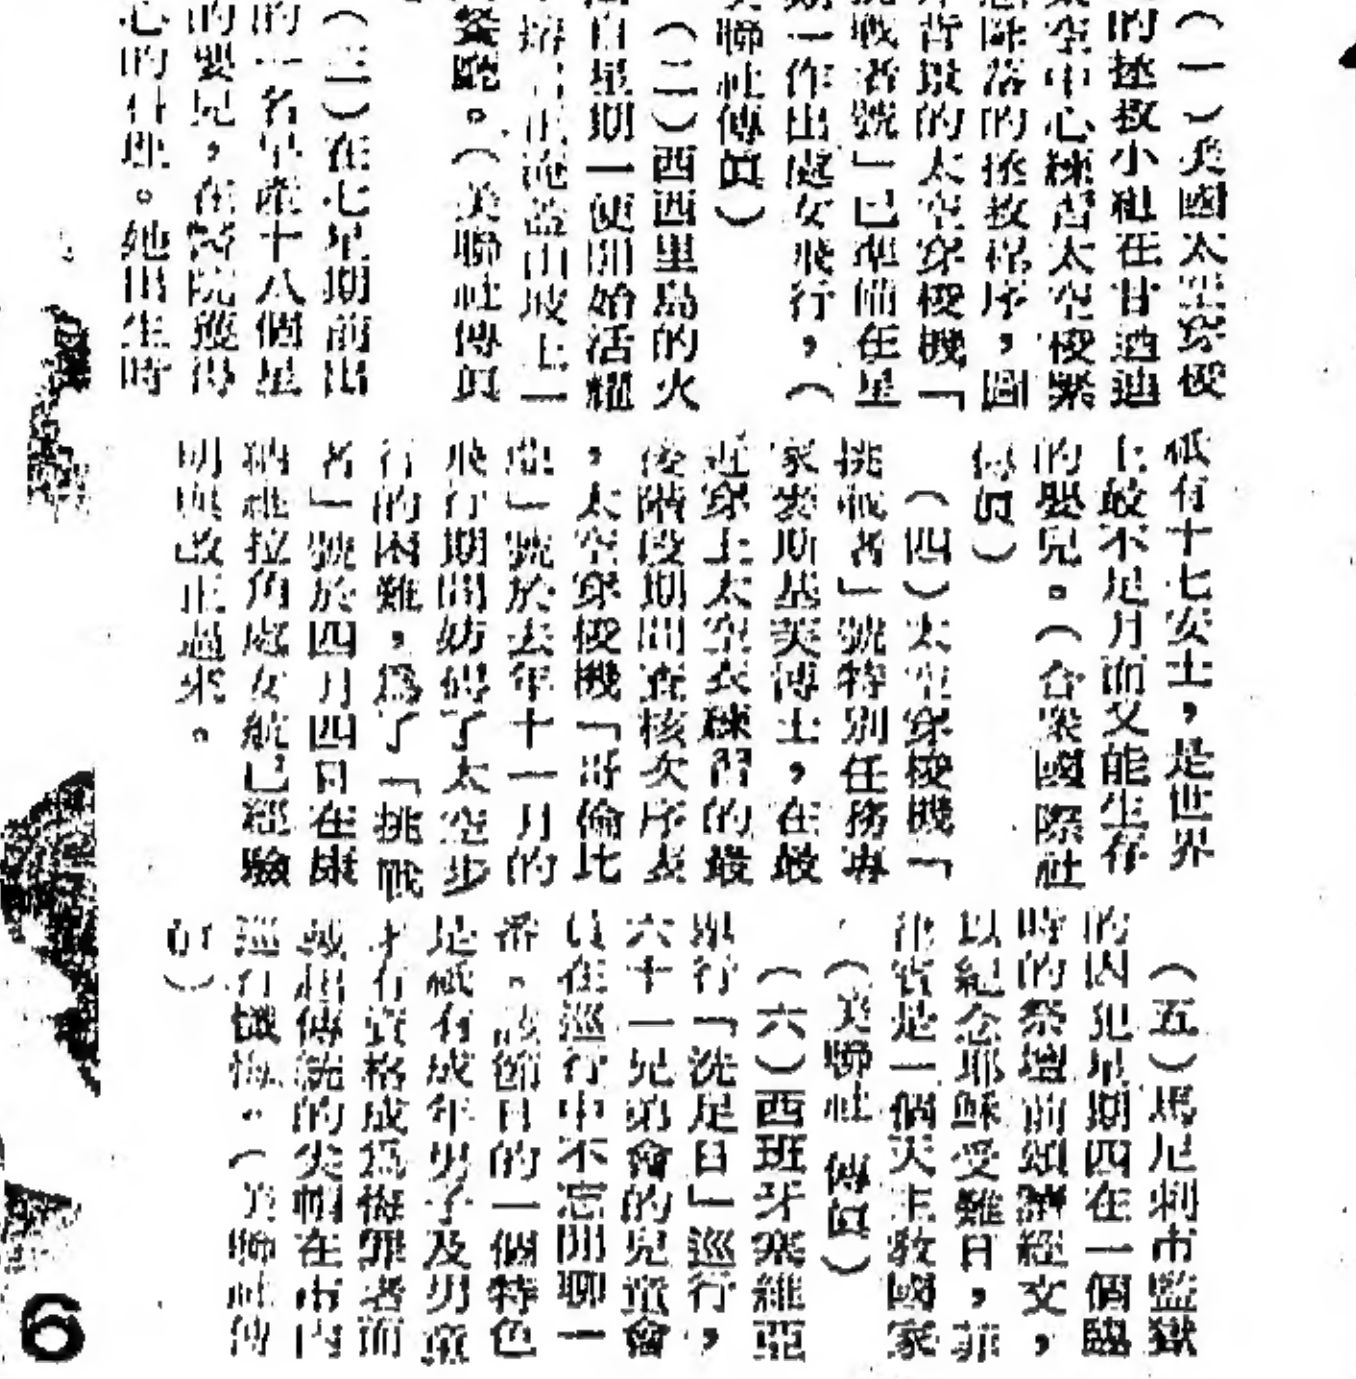 （一）美國太空穿梭
的拯救小組在甘迺迪
太空中心練習太空梭緊
急降落的拯救程序，圖
背景的太空穿梭機「
挑戰者號」已準備在星
期一作出處女飛行，（
美聯社傳眞）
（二）西西里島的火
自星期一便開始活耀
熔岩正淹蓋山坡上一
餐廳。（美聯社傳眞
（三）在七星期前出
的一名早產十八個星
的嬰兒，在醫院獲得
心的什理。她出生時
祇有十七安士，是世界
上最不足月而又能生存
的嬰兒。（合衆國際社
傳眞）
（四）太空穿梭機「
挑戰者」號特別任務專
家雲斯基芙博士，在最
近穿上太空衣練習的最
後階段期間查核次序表
，太空穿梭機「哥倫比
亞」號於去年十一月的
飛行期間妨碍了太空步
行的困難，爲了「挑戰
者」號於四月四日在康
納維拉角處女航已經驗
明與改正過來。
（五）馬尼剌市監獄
的囚犯星期四在一個臨
時的祭壇前頌讀經文，
以紀念耶穌受難日，菲
律賓是一個天主敎國家
（美聯社 傳眞）
（六）西班牙塞維亞
舉行「洗足日」巡行，
六十一兄弟會的兒童會
員在巡行中不忘閒聊一
番。該節日的一個特色
是祇有成年男子及男童
才有資格成爲悔罪者而
戴起傳統的尖帽在市內
巡行懺悔。（美聯社傳
眞）
6